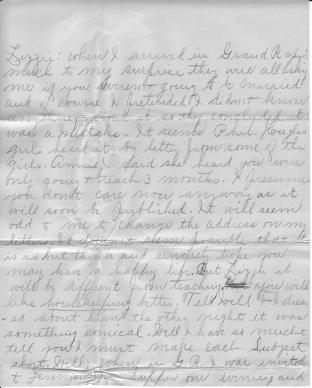 Lizzie: when I arrived in Grand Rapids
much to my surprise they were all asking
me if you weren't going to be married
and of course I pretended I didn't know
anything about it so they concluded it
was a mistake. It seems Phil.
girl heard it by letter from some of the
girls. I said she heard you were
only going to teach 3 months. I presume
you don't care now anyway as it
will soon be published. It will seem
odd to me to change the address on my
letters. It doesn't seem possible that it
is so but think and sincerely hope you
may have a happy life. But Lizzie it
will be different from teaching you will
like housekeeping better. Tell Will I dream
-ed about him the other night it was
something comical. Well I have so much to
tell you I must make each subject
short. Well when in G.R. I was invited
to supper one evening and